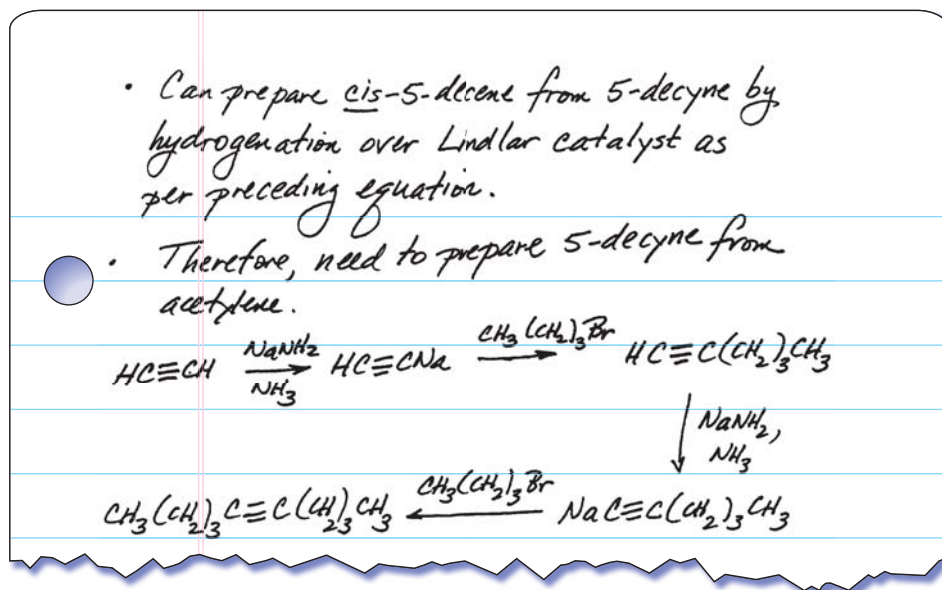 • Can prepare cis-5-decene from 5-decyne by
hydrogenation over Lindlar catalyst as
per preceding equation.
• Therefore, need to prepare 5-decyne from
acetylene.
HC≡CH NaNH₂ NH₃ → HC≡CNa CH₃(CH₂)₃Br → HC≡C(CH₂)₃CH₃
↓ NaNH₂,
NH₃
CH₃(CH₂)₃C≡C(CH₂)₃CH₃ ← CH₃(CH₂)₃Br NaC≡C(CH₂)₃CH₃